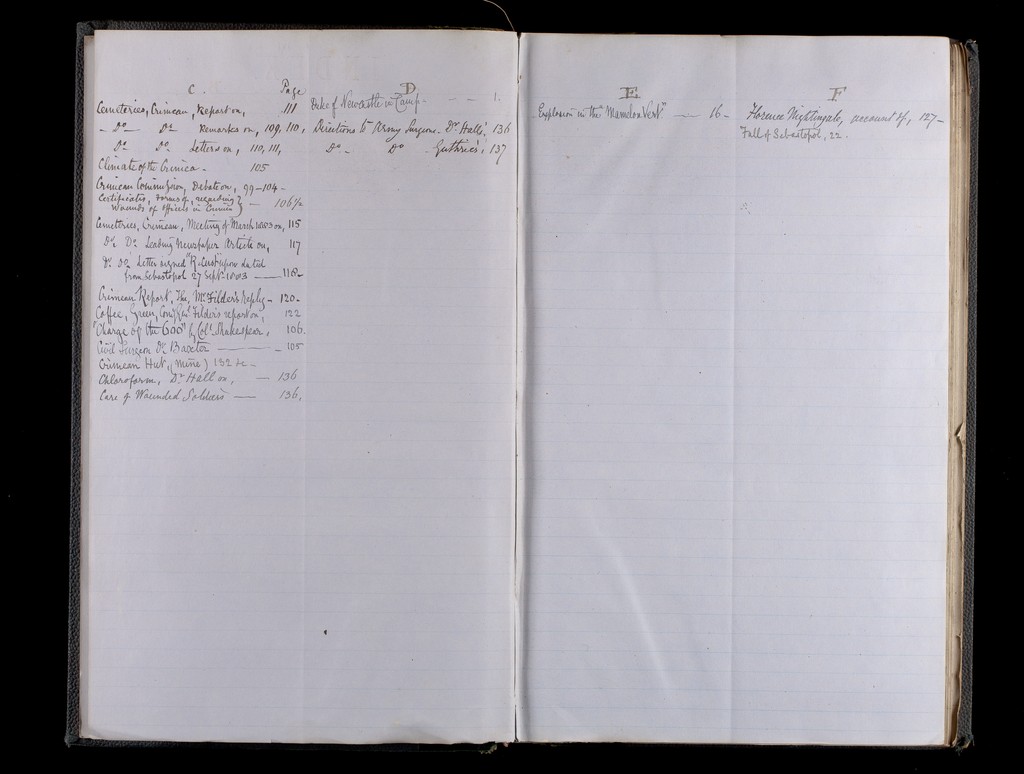 C.
Page
Cemeteries, Crimean, Report on, 111
- Do - Do Remarks on, 109, 110,
Do Do Letters on, 110, 111,
Climate of the Crimea - 105
Crimean Commission, Debate on, 99-104-
Certificates, Forms of, regarding
Wounds of Officers in Crimea } - 106½
Cemetries, Crimean, Meeting of March 1883 on, 115
Do. Do. Leading Newspaper Article on, 117
Do. Do. Letter signed "R. upon dated
from Sebastopol 27 Sept. 1883 - 118-
Crimean Report, The, Mr. Filder's Reply - 120-
Coffee, Green, Comy. Genl. Filder's report on, 122
"Charge of the 600" by Col. Shakespear, 106.
Civil Surgeon Dr. Baxter - 105
Crimean Hut, (mine) 132 &c -
Chloroform, Dr. Hall on, - 136
Care of Wounded Soldiers - 136,
D
Duke of Newcastle in Camp - - - 1.
Directions to Army Surgeons - Dr. Hall's 136
Do - Do Guthrie's, 137
E
Explosion in the "Mamelon Vert" - 16-
F
Florence Nightingale, account of, 127-
Fall of Sebastopol, 22.